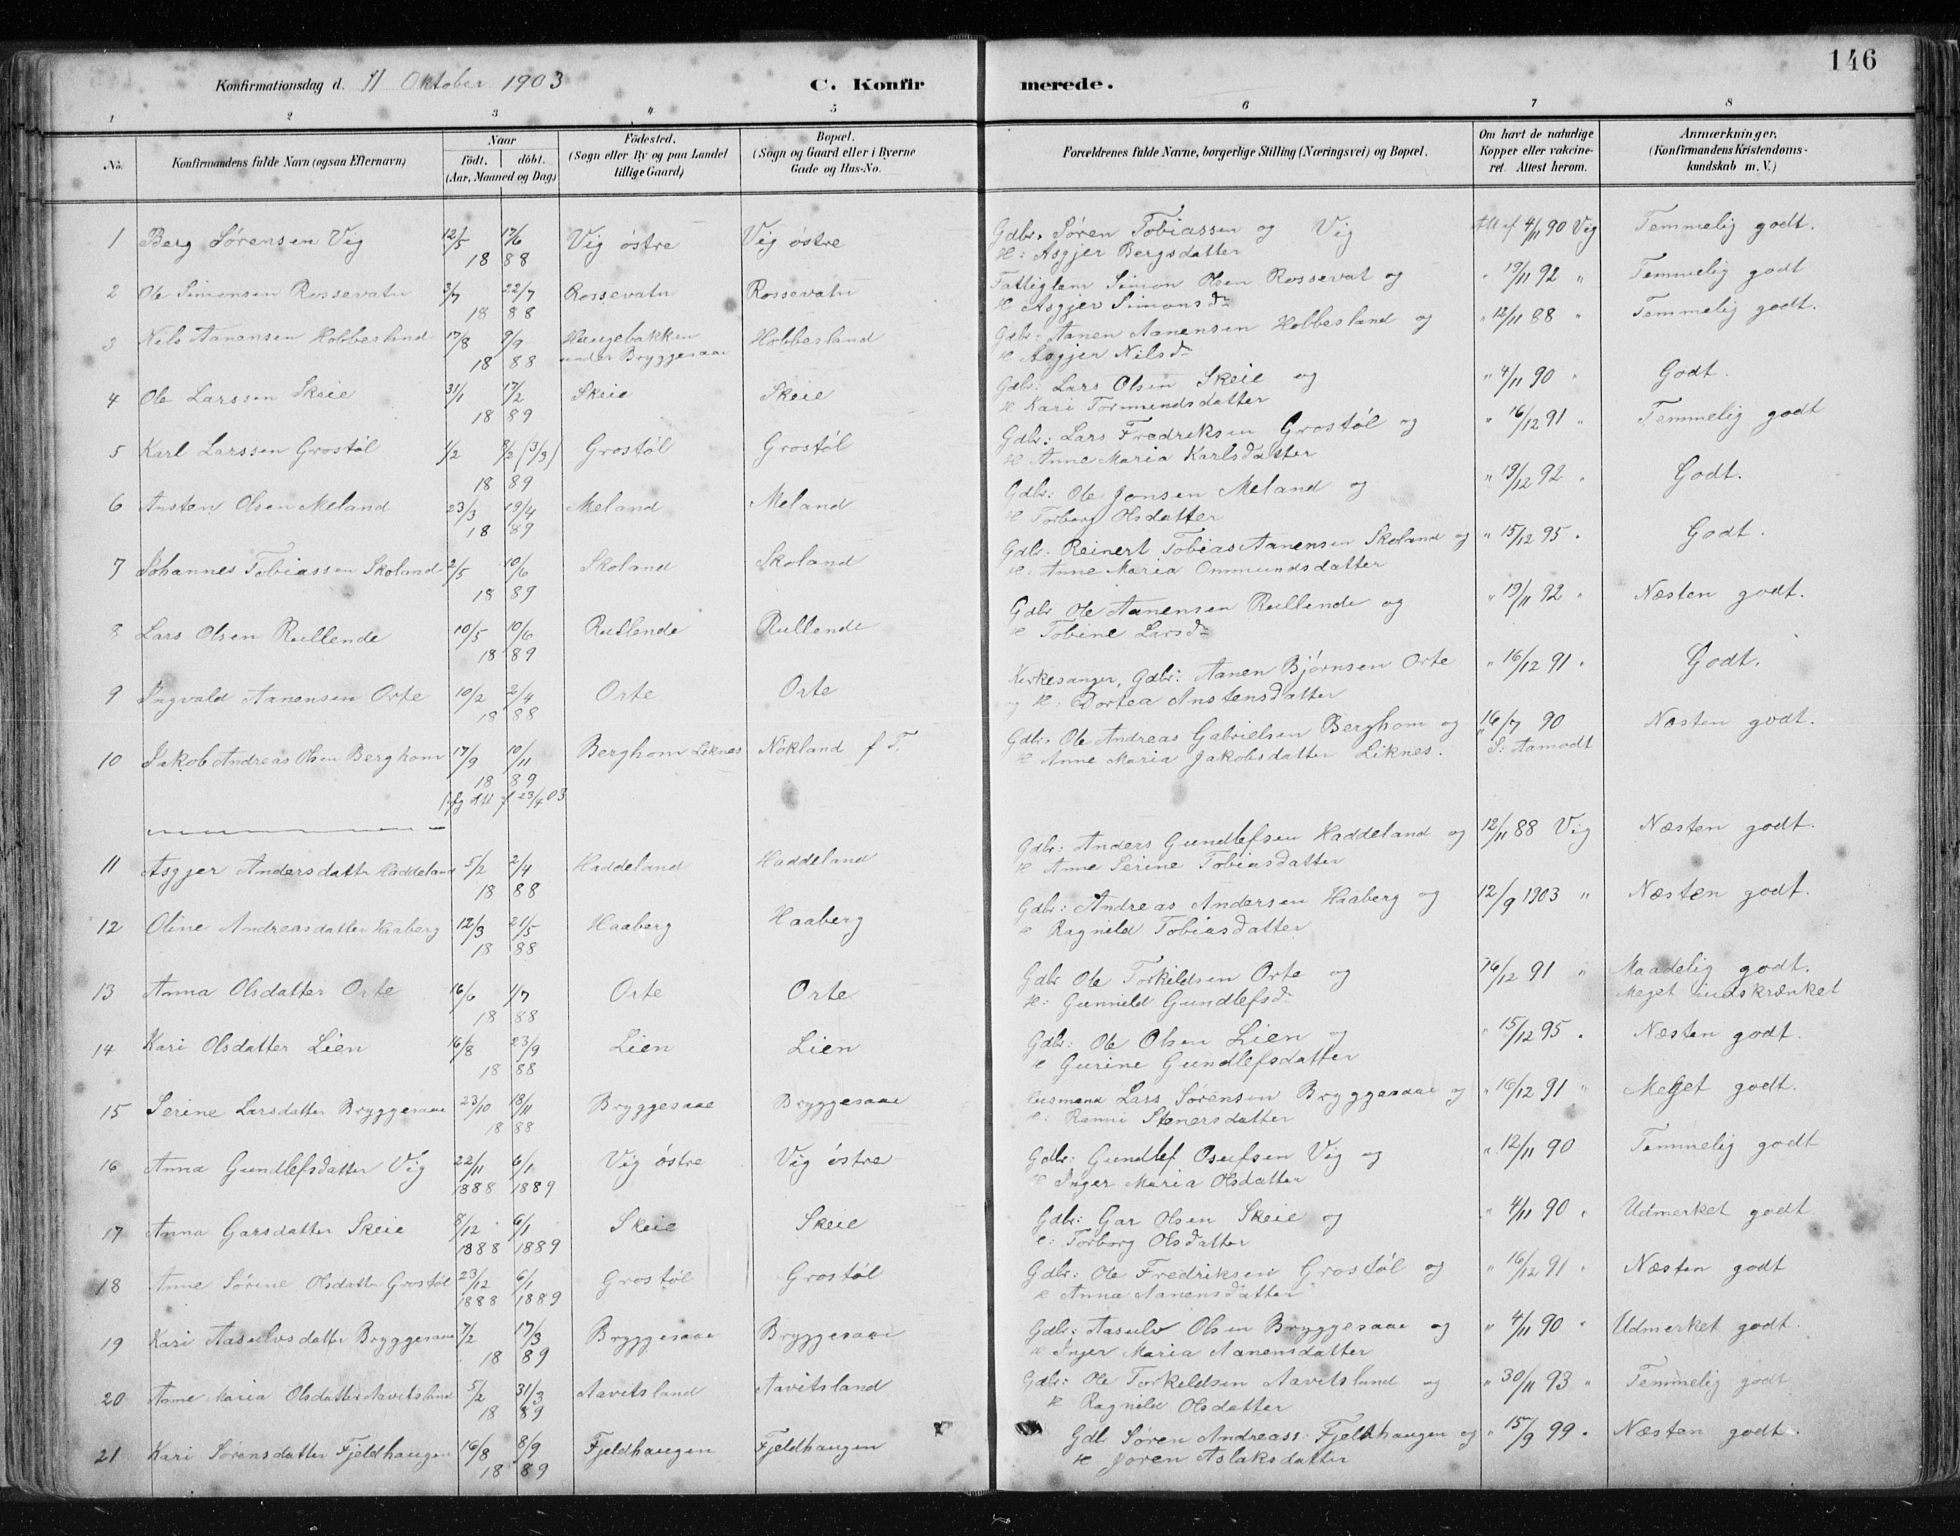 146
Konfirmationsdag d. 11 Oktober 1903 C. Konfirmerede.
1 2 3 4 5 6 7 8
No. Konfirmandens fulde Navn (ogsaa Efternavn) Naar födt. döbt. (Aar, Maaned og Dag) Födested. (Sogn eller By og paa Landet tillige Gaard) Bopæl. (Sogn og Gaard eller i Byerne Gade og Hus-No. Forældrenes fulde Navne, borgerlige Stilling (Næringsvei) og Bopæl. Om havt de naturlige Kopper eller vakcineret. Attest herom. Anmærkninger. (Konfirmandens Kristendomskundskab m. V.)
1 Berg Sørensen Vig 12/5 17/6 Vig østre Vig østre Gdbr. Søren Tobiassen og Vig Att af 4/11 90 Vig Temmelig godt.
18 88 H: Asgjer Bergsdatter
2 Ole Simonsen Rossevatn 2/7 22/7 Rossevatn Rossevatn Fattiglem Simon Olsen Rossevat og " 19/11 92 " Temmelig godt
18 88 H Asgjer Simonsdr
3 Nils Aanensen Hobbesland 17/8 9/9 Haugebakken Hobbesland Gdbr. Aanen Aanensen Hobbesland og " 12/11 88 " Temmelig godt.
18 88 under Bryggesaae H Asgjer Nilsdr
4 Ole Larssen Skeie 31/1 17/2 Skeie Skeie Gdbr: Lars Olsen Skeie og " 4/11 90 " Godt.
18 89 H Kari Tormundsdatter
5 Karl Larssen Grostøl 1/2 8/2 (3/3) Grostøl Grostøl Gdbr: Lars Fredriksen Grostøl og " 16/12 91 " Temmelig godt
18 89 H Anne Maria Karlsdatter
6 Ansten Olsen Meland 23/3 19/4 Meland Meland Gdbr: Ole Jonsen Meland og " 19/12 92 " Godt.
18 89 H Torborg Olsdatter
7 Johannes Tobiassen Skoland 2/5 10/6 Skoland Skoland Gdbr: Reinert Tobias Aanensen Skoland og " 15/12 95 " Godt.
18 89 H: Anne Maria Ommundsdatter
8 Lars Olsen Rullende 10/5 10/6 Rullende Rullende Gdbr Ole Aanensen Rullende og " 19/11 92 " Næsten godt.
18 89 H Tobine Larsdr
9 Ingvald Aanensen Orte 10/2 2/4 Orte Orte Kirkesanger, Gdbr: Aanen Bjørnsen Orte " 16/12 91 " Godt.
18 88 og H: Dortea Anstensdatter
10 Jakob Andreas Olsen Berghom 17/9 10/11 Berghom Liknes Nökland f T. Gdbr. Ole Andreas Gabrielsen Berghom og 16/7 90 Næsten godt.
18 89 H Anne Maria Jakobsdatter Liknes. S: Aamodt
23/4 03
11 Asgjer Andersdatter Haddeland 5/2 2/4 Haddeland Haddeland Gdbr: Anders Gundlefsen Haddeland og 12/11 88 Vig Næsten godt.
18 88 H Anne Serine Tobiasdatter
12 Oline Andreasdatter Haaberg 12/3 21/5 Haaberg Haaberg Gdbr: Andreas Andersen Haaberg og 12/9 1903 " Næsten godt.
18 88 H Ragnild Tobiasdatter
13 Anna Olsdatter Orte 16/6 1/7 Orte Orte Gdbr Ole Torkildsen Orte og 16/12 91 " Maadelig godt.
18 88 H: Gunnild Gundlefsdr Meget indskrænket
14 Kari Olsdatter Lien 16/8 23/9 Lien Lien Gdbr: Ole Olsen Lien og " 15/12 95 " Næsten godt.
18 88 H Gurine Gundlefsdatter
15 Serine Larsdatter Bryggesaae 23/10 18/11 Bryggesaae Bryggesaae Husmand Lars Sørensen Bryggesaae og " 16/12 91 " Meget godt.
18 88 H: Ranni Stenersdatter
16 Anna Gundlefsdatter Vig 22/11 6/1 Vig østre Vig østre Gdbr: Gundlef Osufsen Vig og " 12/11 90 Temmelig godt
1888 1889 H Inger Maria Olsdatter
17 Anna Garsdatter Skeie 8/12 6/1 Skeie Skeie Gdbr: Gar Olsen Skeie og " 4/11 90 " Udmerket godt
1888 1889 H: Torborg Olsdatter
18 Anne Sørine Olsdatter Grostøl 23/12 6/1 Grostøl Grostøl Gdbr: Ole Fredriksen Grostøl og " 16/12 91 " Næsten godt
1888 1889 H Anna Aanensdatter
19 Kari Aasulvsdatter Bryggesaae 7/2 17/3 Bryggesaae Bryggesaae Gdbr: Aasulv Olsen Bryggesaae og " 4/11 90 " Udmerket godt.
18 89 H Inger Maria Aanensdatter
20 Anne Maria Olsdatter Aavitsland 5/2 31/3 Aavitsland Aavitsland Gdbr: Ole Torkildsen Aavitsland og " 30/11 93 " Temmelig godt
18 89 H Ragnild Olsdatter
21 Kari Sørensdatter Fjeldhaugen 16/8 8/9 Fjeldhaugen Fjeldhaugen Gdbr Søren Andreass: Fjeldhaugen og " 15/9 99 " Næsten godt.
18 89 H Joren Aslaksdatter